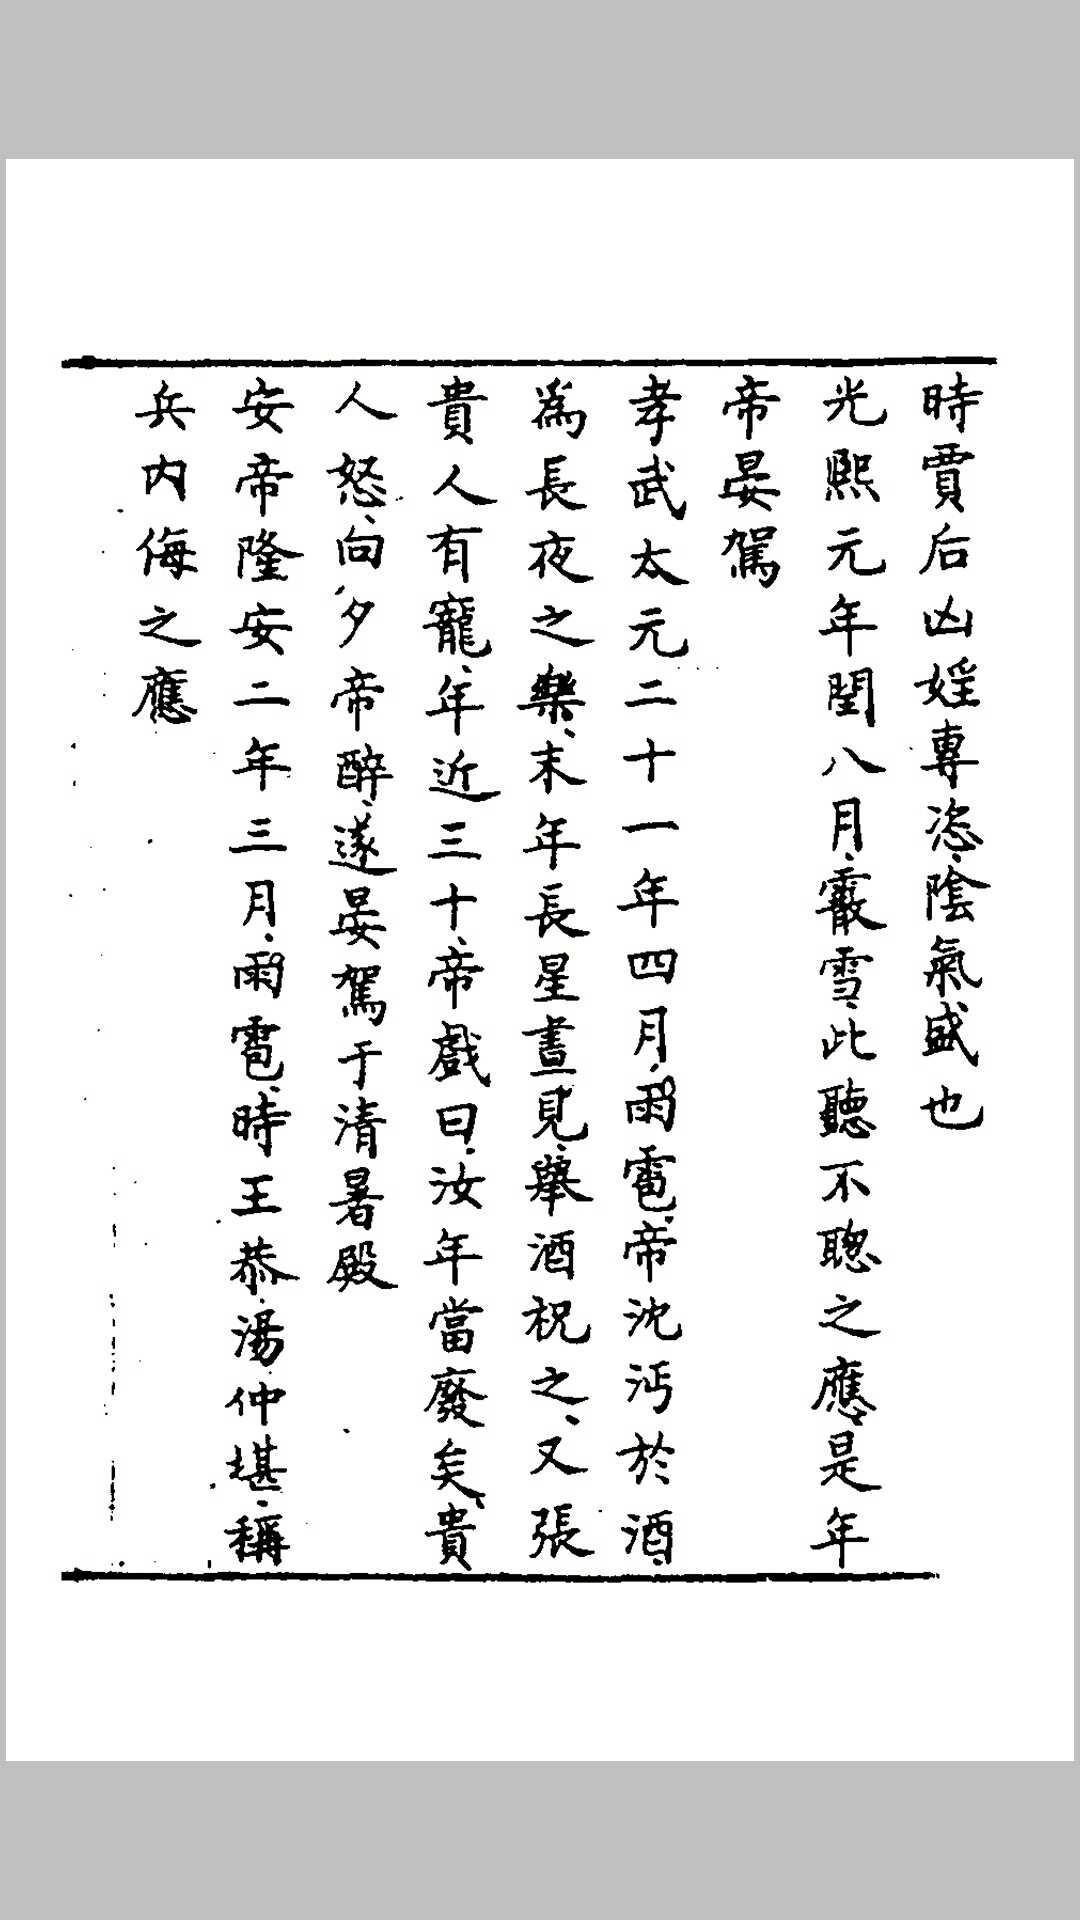 時賈后凶婬專恣、陰氣盛也
光熙元年閏八月、霰雪、此聽不聰之應、是年
帝晏駕
孝武太元二十一年四月、雨雹、帝沈湎於酒、
為長夜之樂、末年長星晝見、舉酒祝之、又張
貴人有寵、年近三十、帝戲曰、汝年當廢矣、貴
人怒、向夕、帝醉、遂晏駕于清暑殿
安帝隆安二年三月、雨雹、時王恭湯仲堪、稱
兵内侮之應